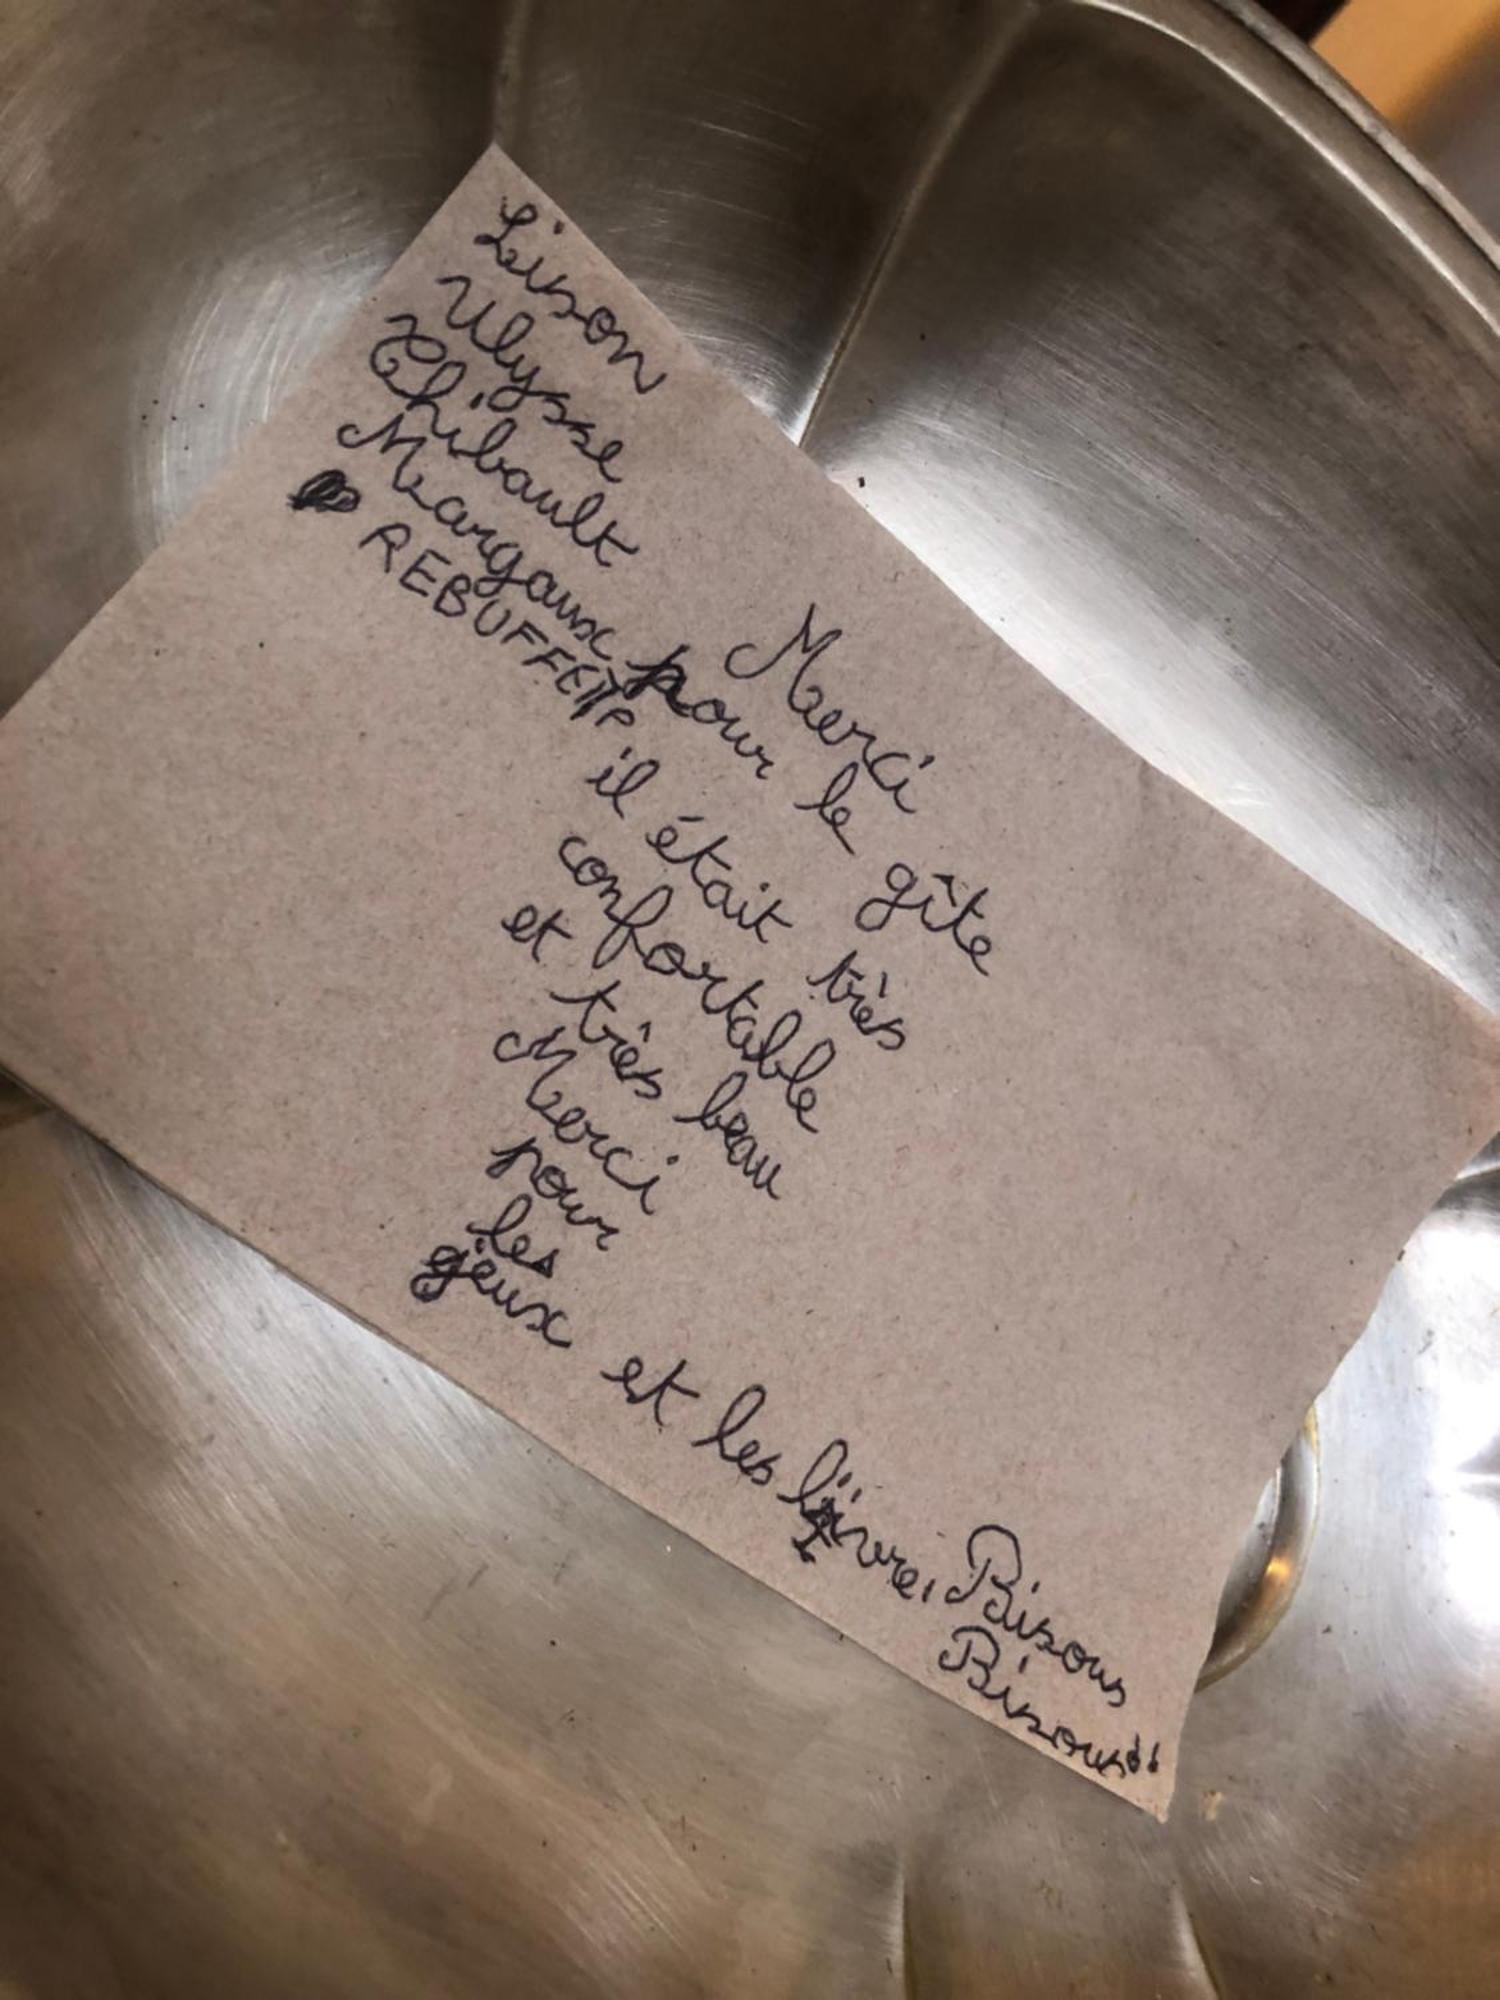 Lison
Ulysse
Thibault
Margaux
REBUFFET
Merci
pour le gîte
il était très
confortable
et très beau
Merci
pour
les
jeux et les livre, Bisous
Bisous!!